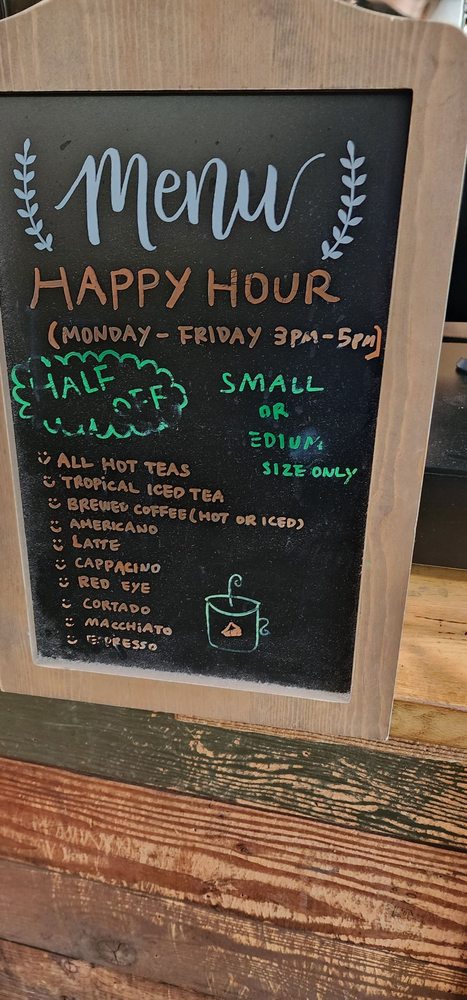 Menu
HAPPY HOUR
(MONDAY - FRIDAY 3PM - 5PM)
HALF OFF
SMALL
OR
EDIUM
SIZE ONLY
ALL HOT TEAS
TROPICAL ICED TEA
BREWED COFFEE (HOT OR ICED)
AMERICANO
LATTE
CAPPACINO
RED EYE
CORTADO
MACCHIATO
ESPRESSO